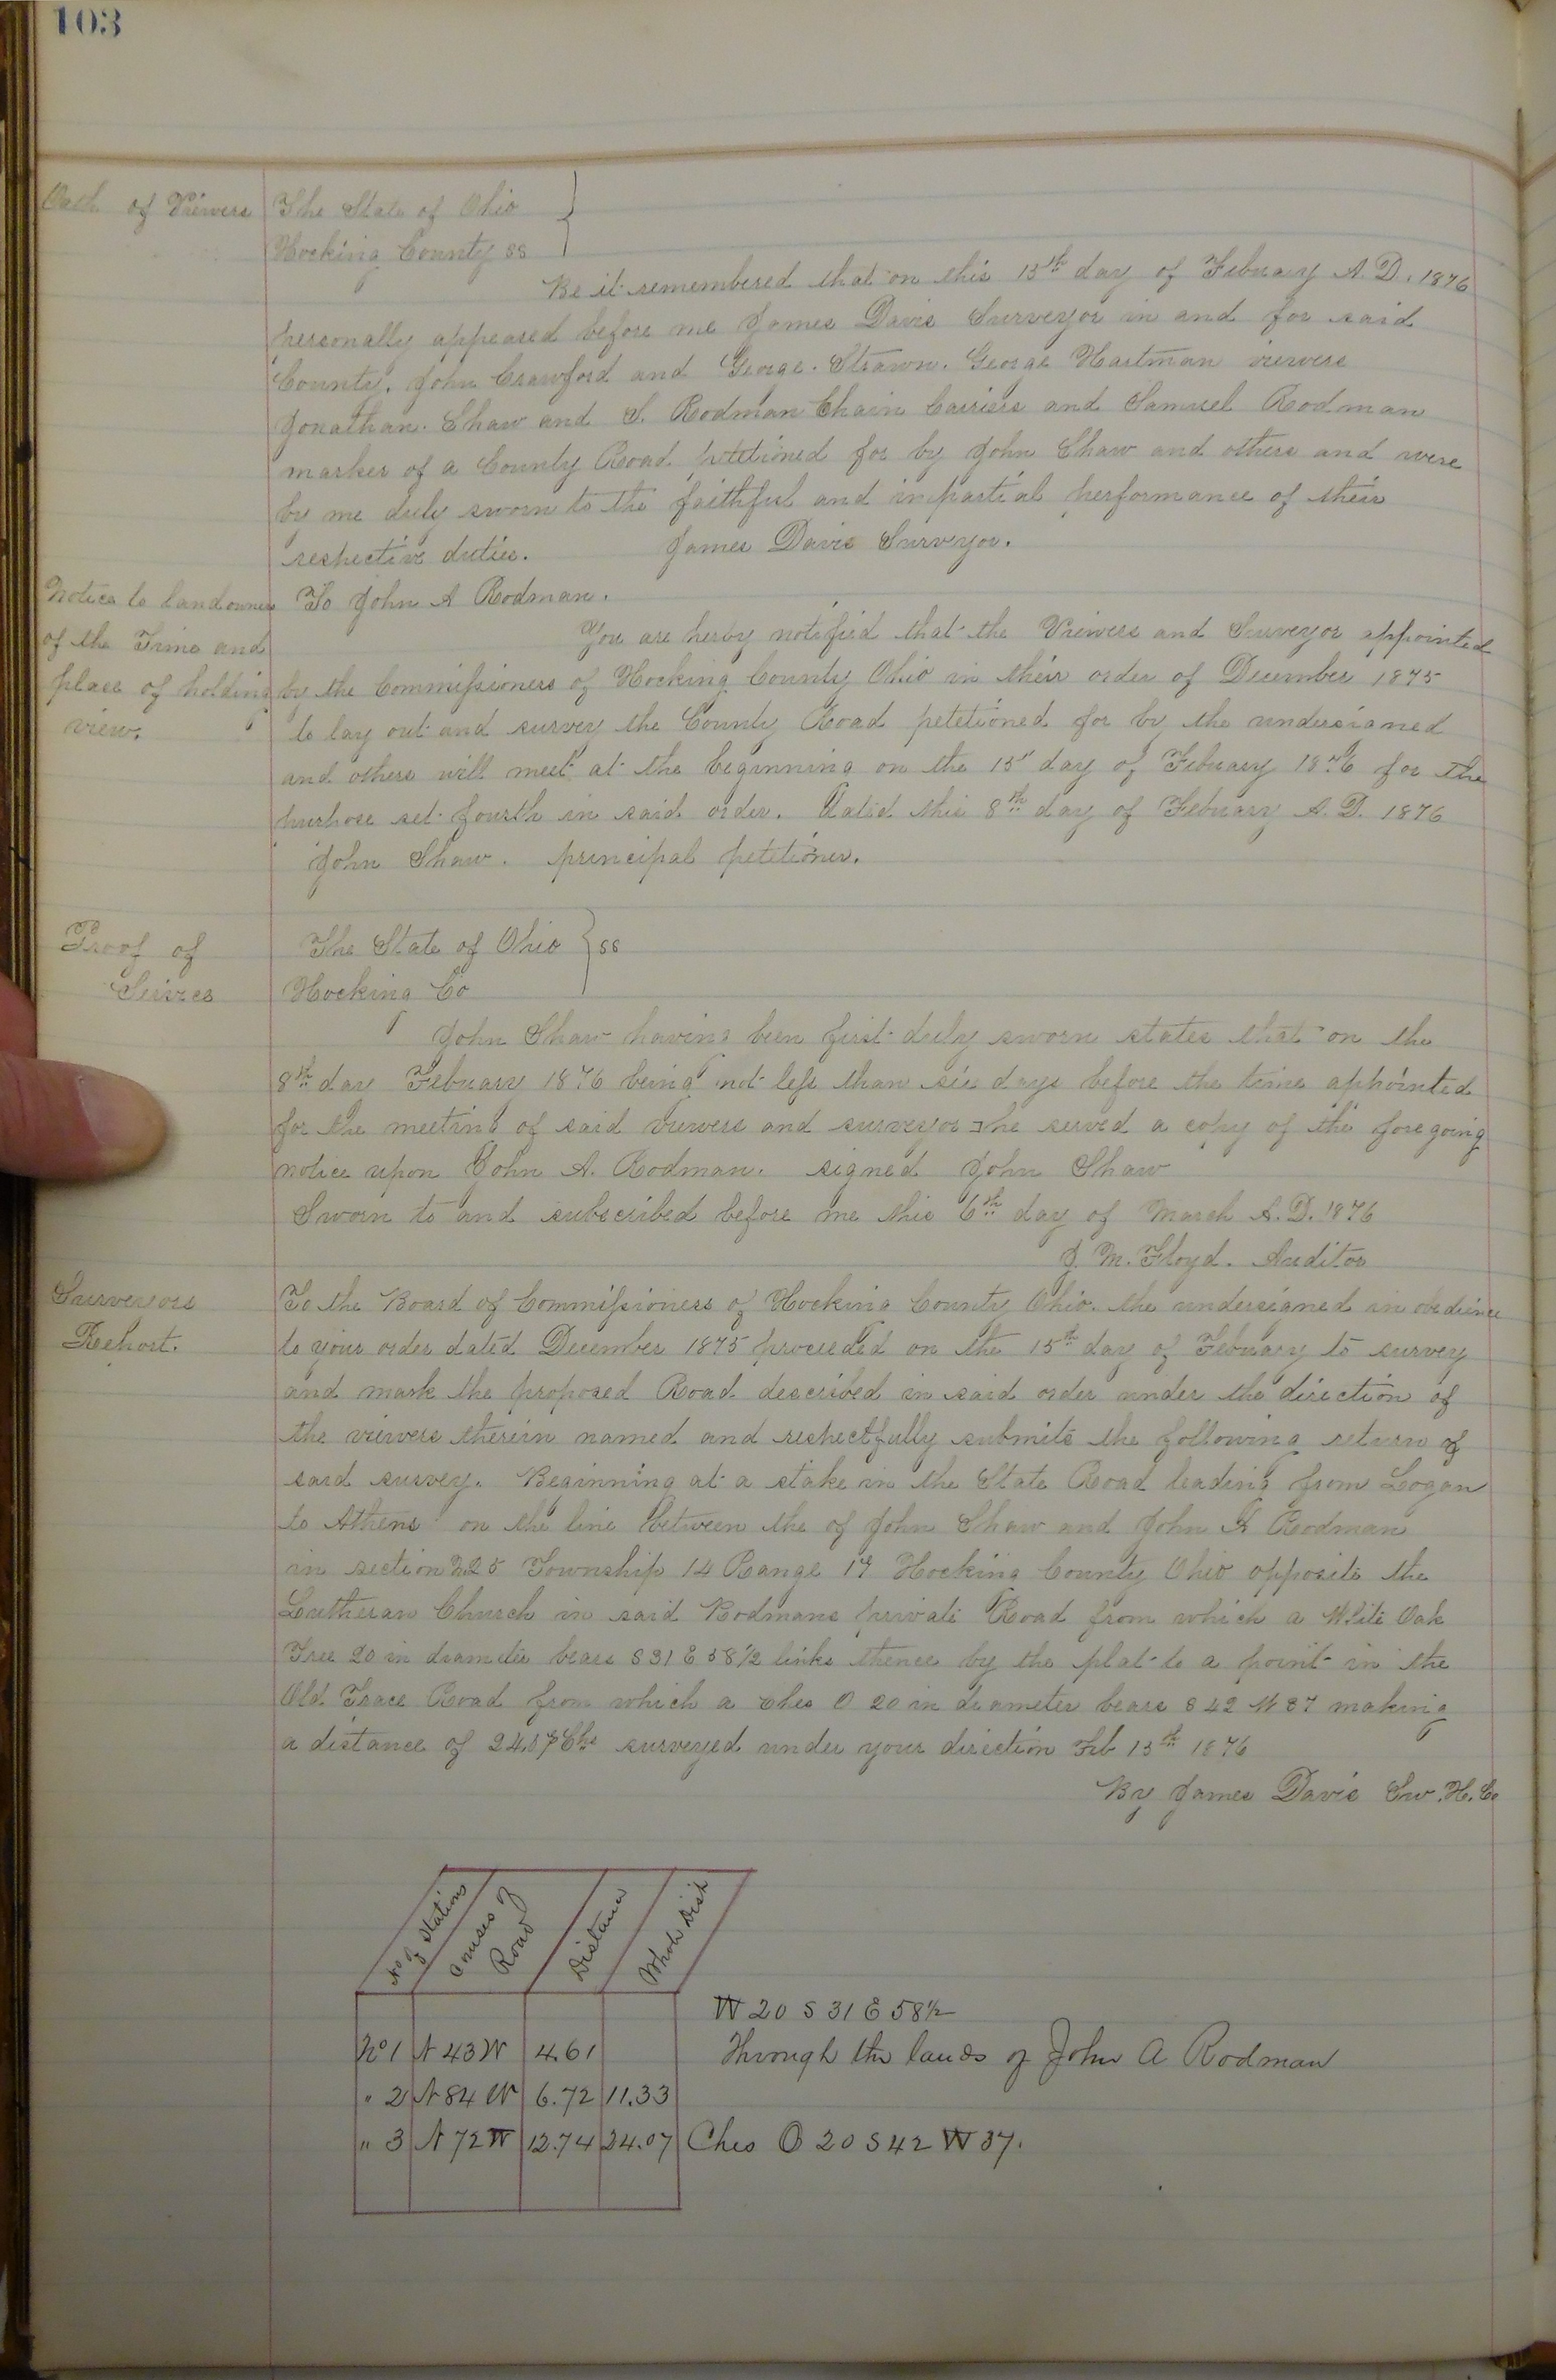 103
Oath of Viewers
The State of Ohio
Hocking County ss
Be it remembered that on this 15th day of Febuary A.D. 1876
personally appeared before me James Davis Surveyor in and for said
County. John Crawford and George. Strawn. George Hartman viewers
Jonathan. Shaw and S. Rodman Chain Carriers and Samuel Rodman
marker of a County Road petitioned for by John Shaw and others and were
by me duly sworn to the faithful and impartial performance of their
respective duties. James Davis Surveyor.
Notice to landowners
of the Time and
place of holding
view.
To John A Rodman.
You are herby notified that the Viewers and Surveyor appointed
by the Commissioners of Hocking County Ohio in their order of December 1875
to lay out and survey the County Road petetioned for by the undersigned
and others will meet at the beginning on the 15" day of Febuary 1876 for the
purpose set fourth in said order. Dated this 8th day of Febuary A.D. 1876
John Shaw. principal petetioner.
Proof of
The State of Ohio } ss
Hocking Co
John Shaw having been first duly sworn states that on the
8th day Febuary 1876 being not less than six days before the time appointed
for the meeting of said viewers and surveyor he served a copy of the foregoing
notice upon John A. Rodman. signed John Shaw
Sworn to and subscribed before me this 6th day of March A.D. 1876
J. M. Floyd. Auditor
Surveyors
Report.
To the Board of Commissioners of Hocking County Ohio. the undersigned in obedience
to your order dated December 1875 proceeded on the 15th day of Febuary to survey
and mark the proposed Road described in said order under the direction of
the viewers therein named and respectfully submits the following return of
said survey. Beginning at a stake in the State Road leading from Logan
to Athens on the line between the of John Shaw and John A Rodman
in section Township 14 Range 17 Hocking County Ohio opposite the
Lutheran Church in said Rodmans private Road from which a White Oak
Tree 20 in diameter bears S 31 E 58½ links thence by the plat to a point in the
Old Trace Road from which a Ches O 20 in diameter bears S 42 W 37 making
a distance of 24.07 Chs surveyed under your direction Feb 15th 1876
By James Davis Sur. H. Co
No of Stations
Courses of Road
Distance
Whole Dist
W 20 S 31 E 58½
No 1 N 43 W 4.61 Through the lands of John A Rodman
" 2 N 84 W 6.72 11.33
" 3 N 72 W 12.74 24.07 Ches O 20 S 42 W 37.